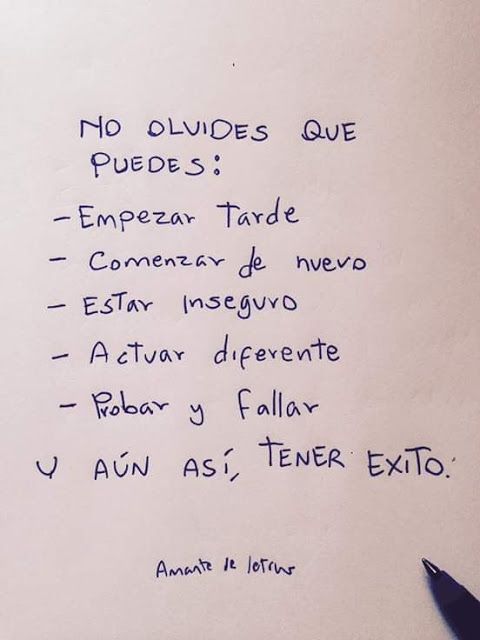 NO OLVIDES QUE
PUEDES:
- Empezar Tarde
- Comenzar de nuevo
- Estar inseguro
- Actuar diferente
- Probar y fallar
Y AÚN ASÍ, TENER EXITO.
Amante de letras